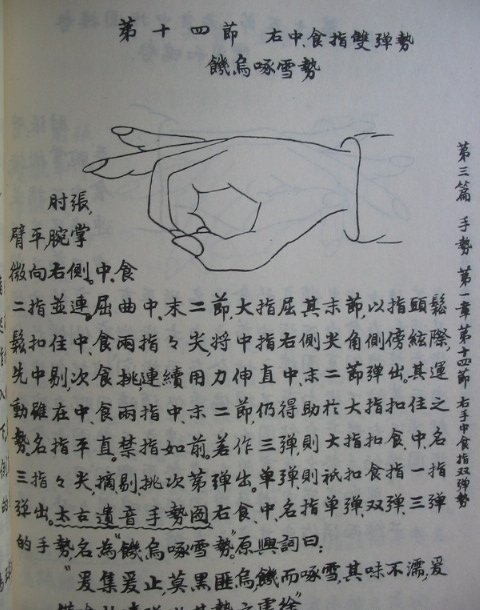 第十四節 右中、食指雙弹勢
饑烏啄雪勢
肘張,
臂平,腕掌
微向右側。中、食
二指並連。屈曲中、末二節,大指屈其末節,以指頭鬆
鬆扣住中、食兩指々尖,將中指右側尖角側傍絃際
先中剔次食挑,連續用力伸直中、末二節弹出。其運
動雖在中、食兩指中、末二節,仍得助扵大指扣住之
勢。名指平直。禁指如前。若作三弹,則大指扣食、中、名
三指々尖,摘剔挑次第弹出。单弹則祇扣食指一指
弹出。太古遺音手勢圖右食、中、名指单弹双弹三弹
的手勢名為“饑烏啄雪勢”原興詞曰:
“爰集爰止,莫黑匪烏,饑而啄雪,其味不濡,爰
第三篇 手勢 第一章第十四節 右手中食指双弹勢